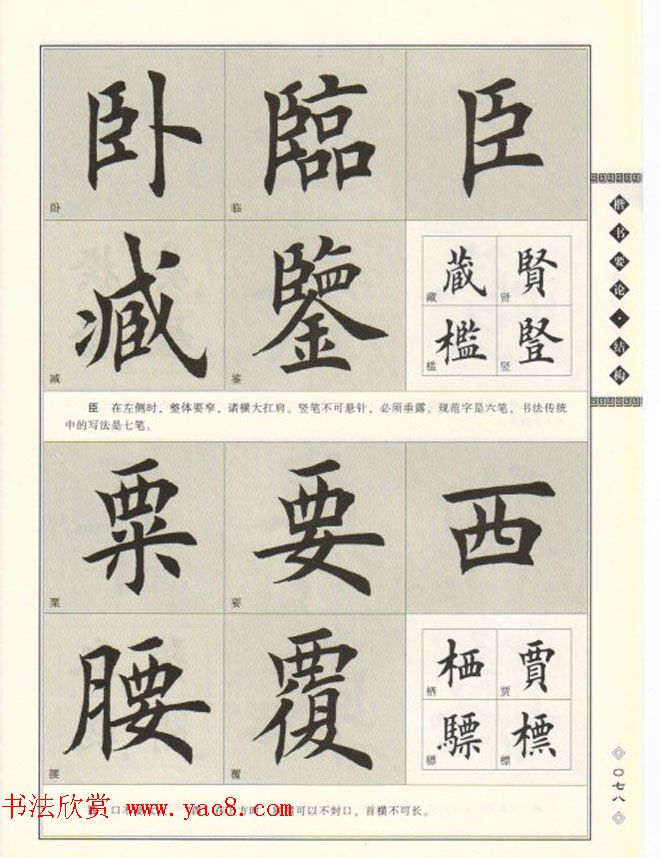 臣 臨 卧
臣 临 卧
鑒 臧
鉴 臧
賢 蔵
贤 藏
豎 檻
竖 槛
臣 在左侧时，整体要窄，诸横大扛肩。竖笔不可悬针，必须垂露。规范字是六笔，书法传统
中的写法是七笔。
西 要 粟
要 粟
覆 腰
覆 腰
賈 栖
贾 栖
標 驃
標 骠
口不
可以不封口，首横不可长。
楷书要论·结构
〇七八
书法欣赏 www.yac8.com